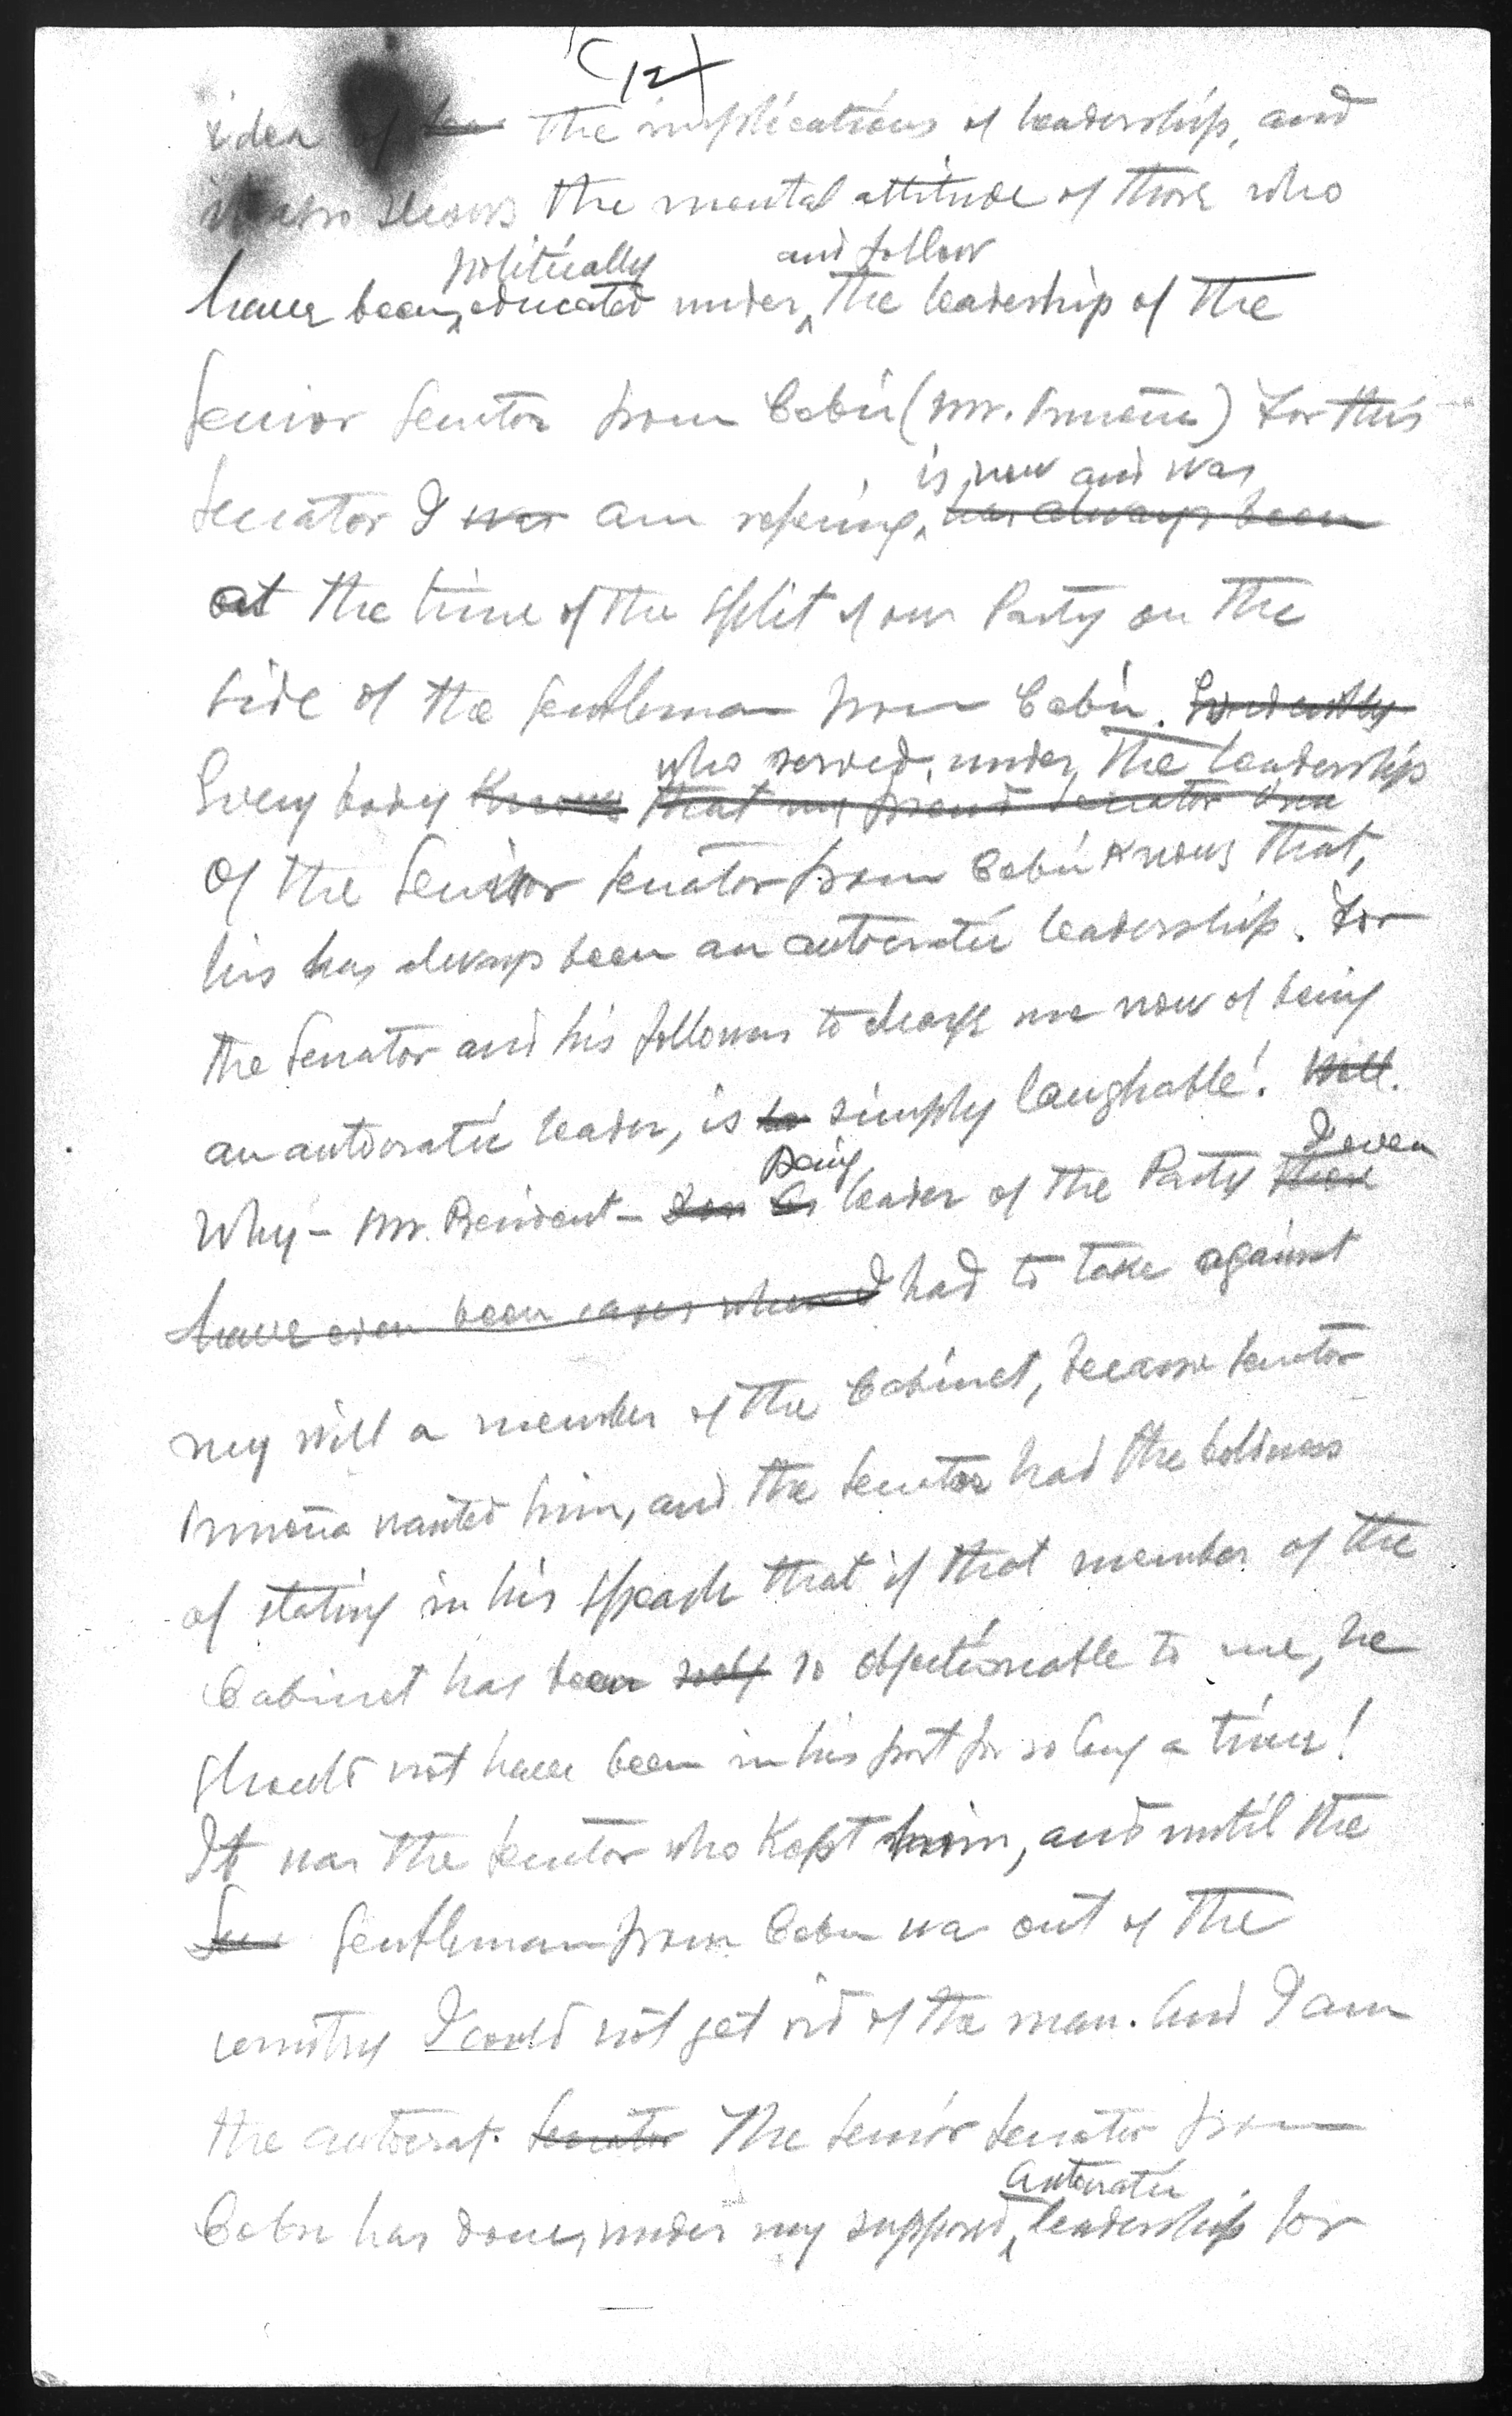 (12)
idea of the implications of leadership, and
it also shows the mental attitude of those who
politically and follow
have been educated under the leadership of the
Senior Senator from Cebú (Mr. Osmeña) For this
is now and was
Senator I was am refering, has always been
at the time of the split of our Party on the
side of the gentleman from Cebú. Evidently
who served under the leadership
Everybody knows that my friend Senator
of the Senior Senator from Cebú knows that,
his has always been an autocratic leadership. For
the Senator and his followers to charge me now of being
an autocratic leader, is simply laughable! Well.
Being I even
Why – Mr. President – As leader of the Party there
have even been cases where I had to take against
my will a member of the Cabinet, because Senator
Osmeña wanted him, and the Senator had the boldness
of stating in his speach that if that member of the
Cabinet has been so objectionable to me, he
should not have been in his post for so long a time!
It was the Senator who Kept him, and until the
Sen gentleman from Cebu was out of the
country I could not get rid of the man. And I am
the autocrat. Senator The Senior Senator from
autocratic
Cebu has done, under my supposed leadership for